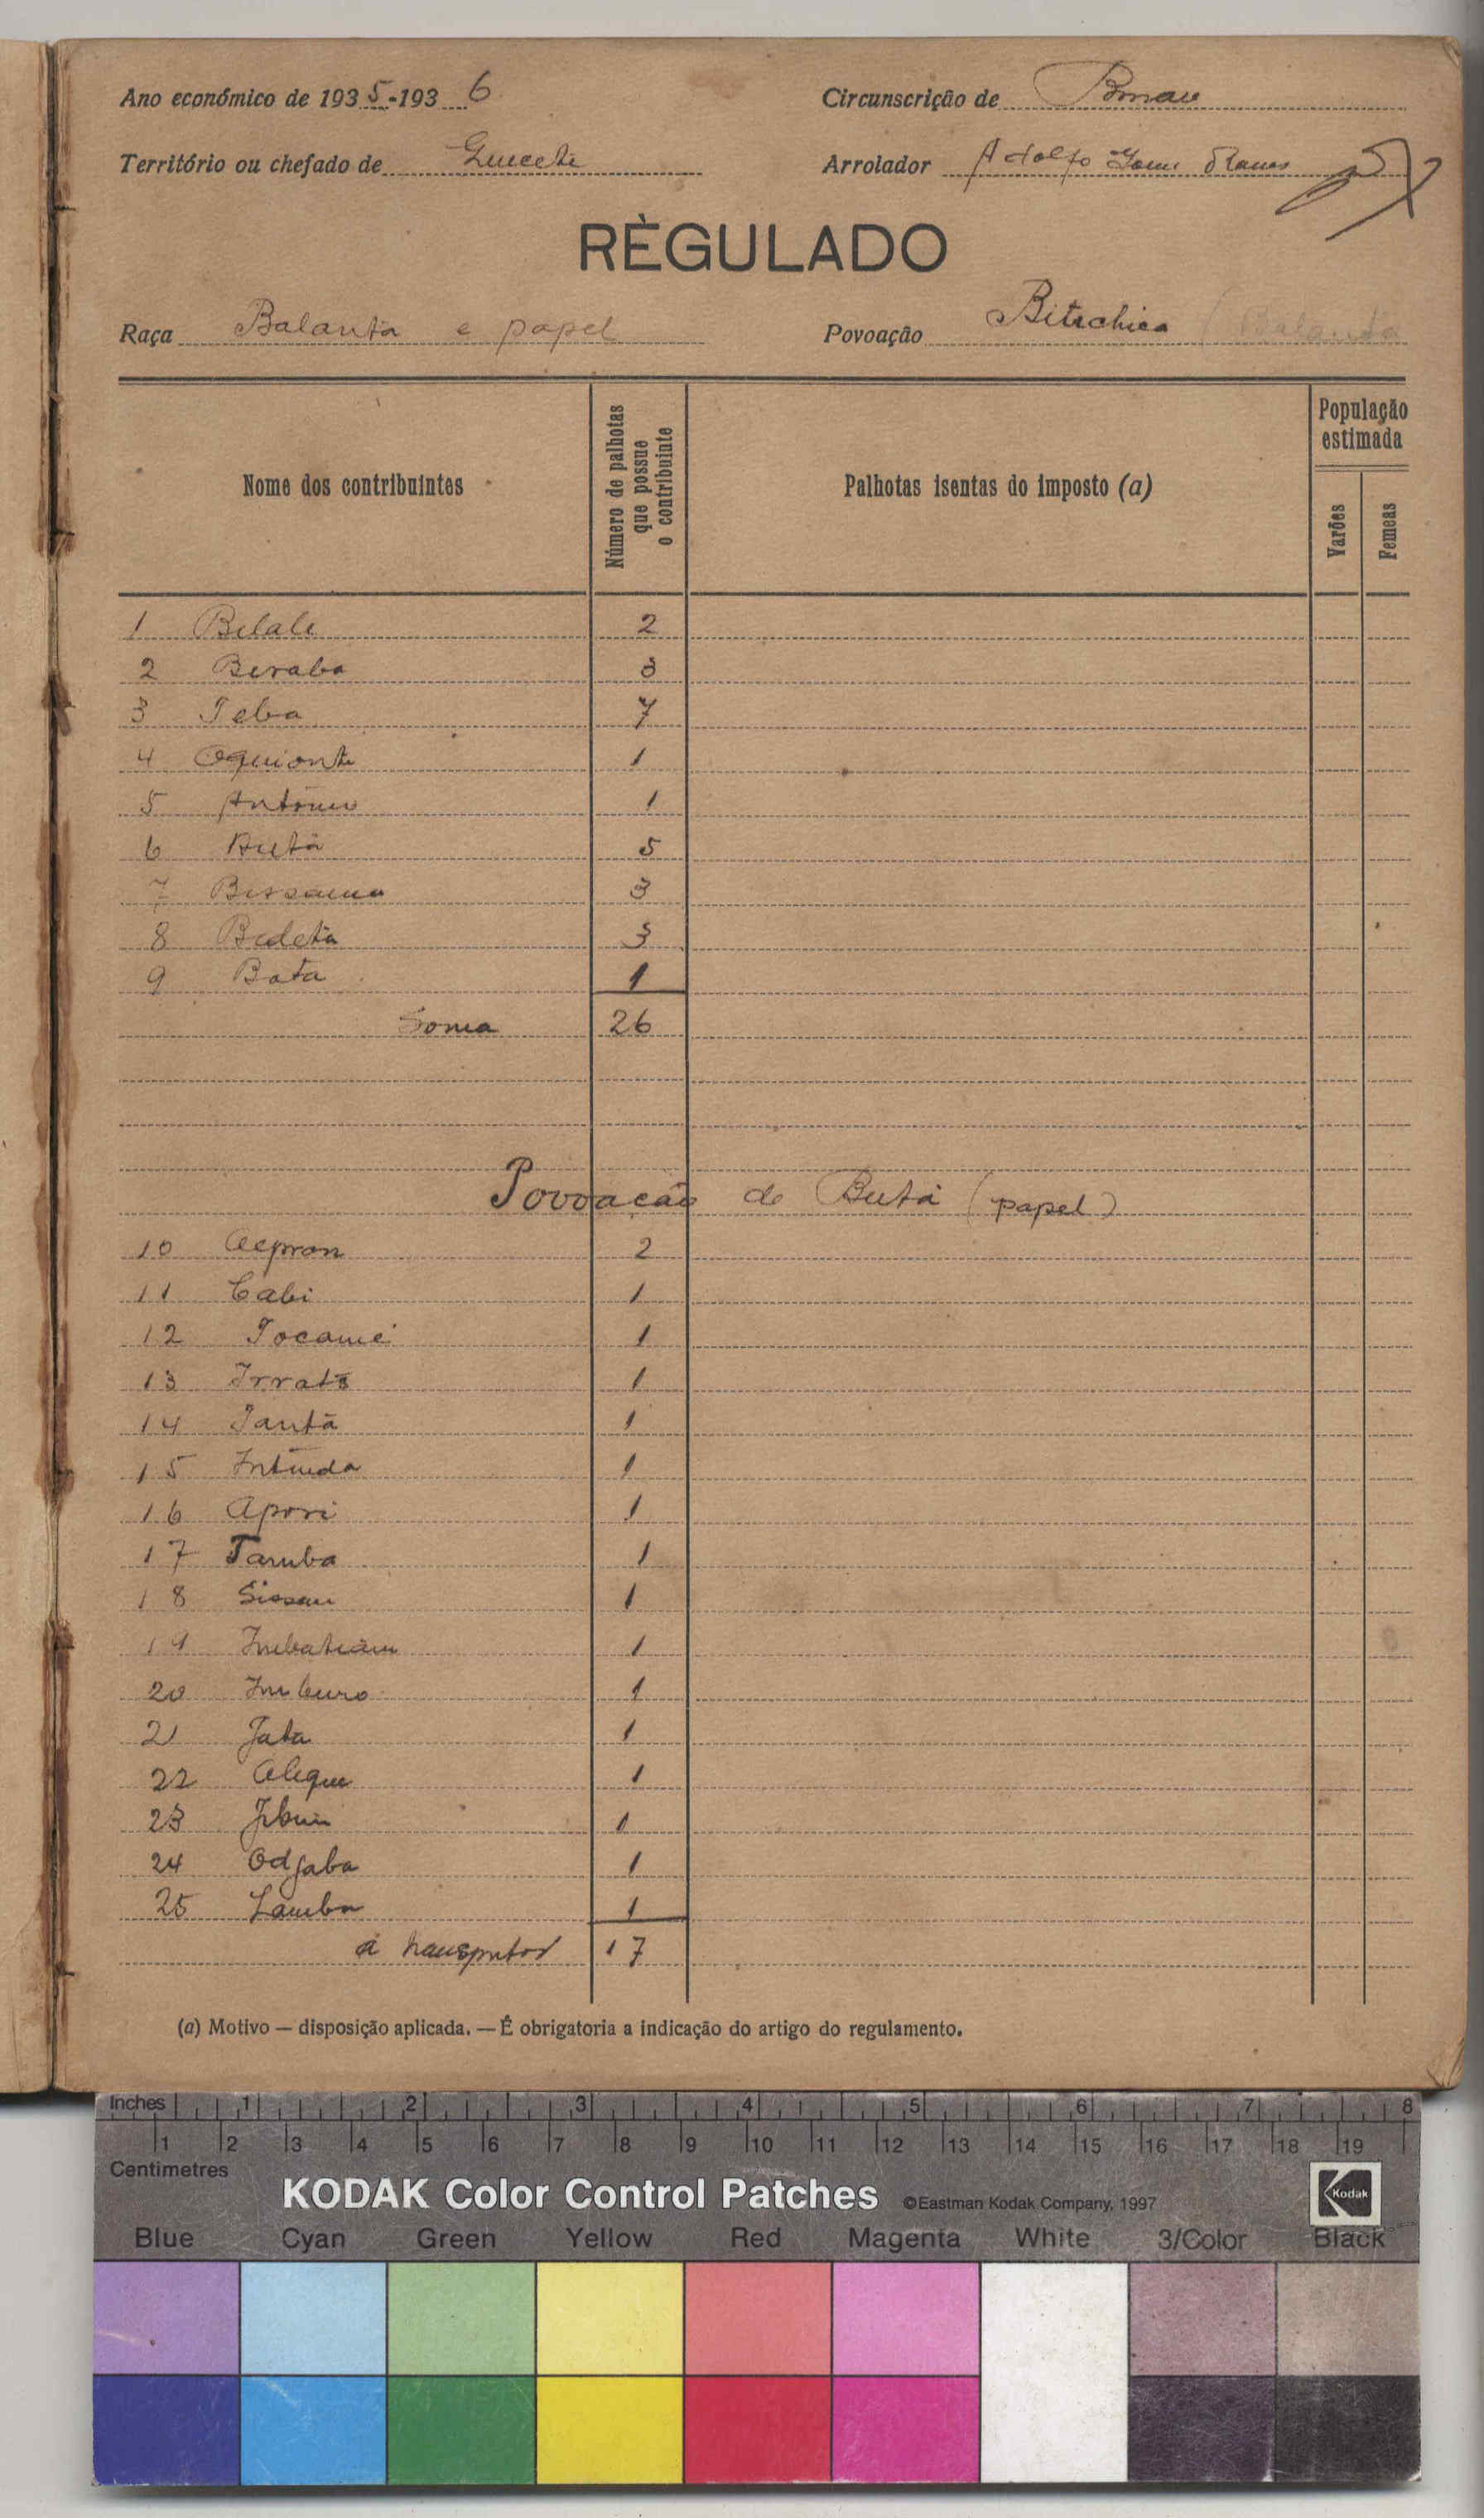 Ano económico de 1935-1936
Circunscrição de
Território ou chefado de
Arrolador Adolfo
RÈGULADO
Raça Balanta e papel
Povoação (Balanta
Nome dos contribuintes
Número de palhotas
que possue
o contribuinte
Palhotas isentas do imposto (a)
População
estimada
Varões
Femeas
1 Bilale 2
2 Biraba 3
3 Teba 7
4 Oquionte 1
5 António 1
6 Butá 5
7 3
8 Bedeta 3
9 Bata 1
Soma 26
Povoacão de Butá (papel)
10 Aepron 2
11 Cabi 1
12 Tocamé 1
13 1
14 Tantã 1
15 1
16 Apori 1
17 Tamba 1
18 1
19 1
20 Imburo 1
21 Jata 1
22 Aleque 1
23 1
24 Odjaba 1
25 Lamba 1
a transportar 17
(a) Motivo — disposição aplicada. — É obrigatoria a indicação do artigo do regulamento.
Inches 1 2 3 4 5 6 7 8
1 2 3 4 5 6 7 8 9 10 11 12 13 14 15 16 17 18 19
Centimetres
KODAK Color Control Patches ©Eastman Kodak Company, 1997 Kodak
Blue Cyan Green Yellow Red Magenta White 3/Color Black